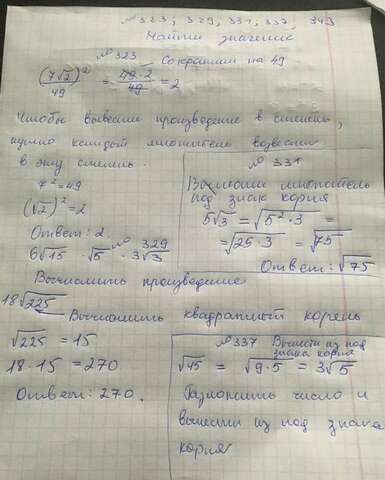 №323, 329, 331, 337, 349
Найти значение
№323 Сократим на 49
(7√2)²/49 = 49·2/49 = 2
Чтобы вывести произведение в степень,
нужно каждый множитель возвести
в эту степень.
7² = 49
(√2)² = 2
Ответ: 2.
№331
Внесите множитель
под знак корня
5√3 = √5²·3 =
= √25·3 = √75
Ответ: √75
№329
6√15 · √5 · 3√3
Вычислить произведение
18√225
Вычислить квадратный корень
√225 = 15
18·15 = 270
Ответ: 270.
№337 Вынести из под
знака корня
√45 = √9·5 = 3√5
Разложить число и
вынести из под знака
корня